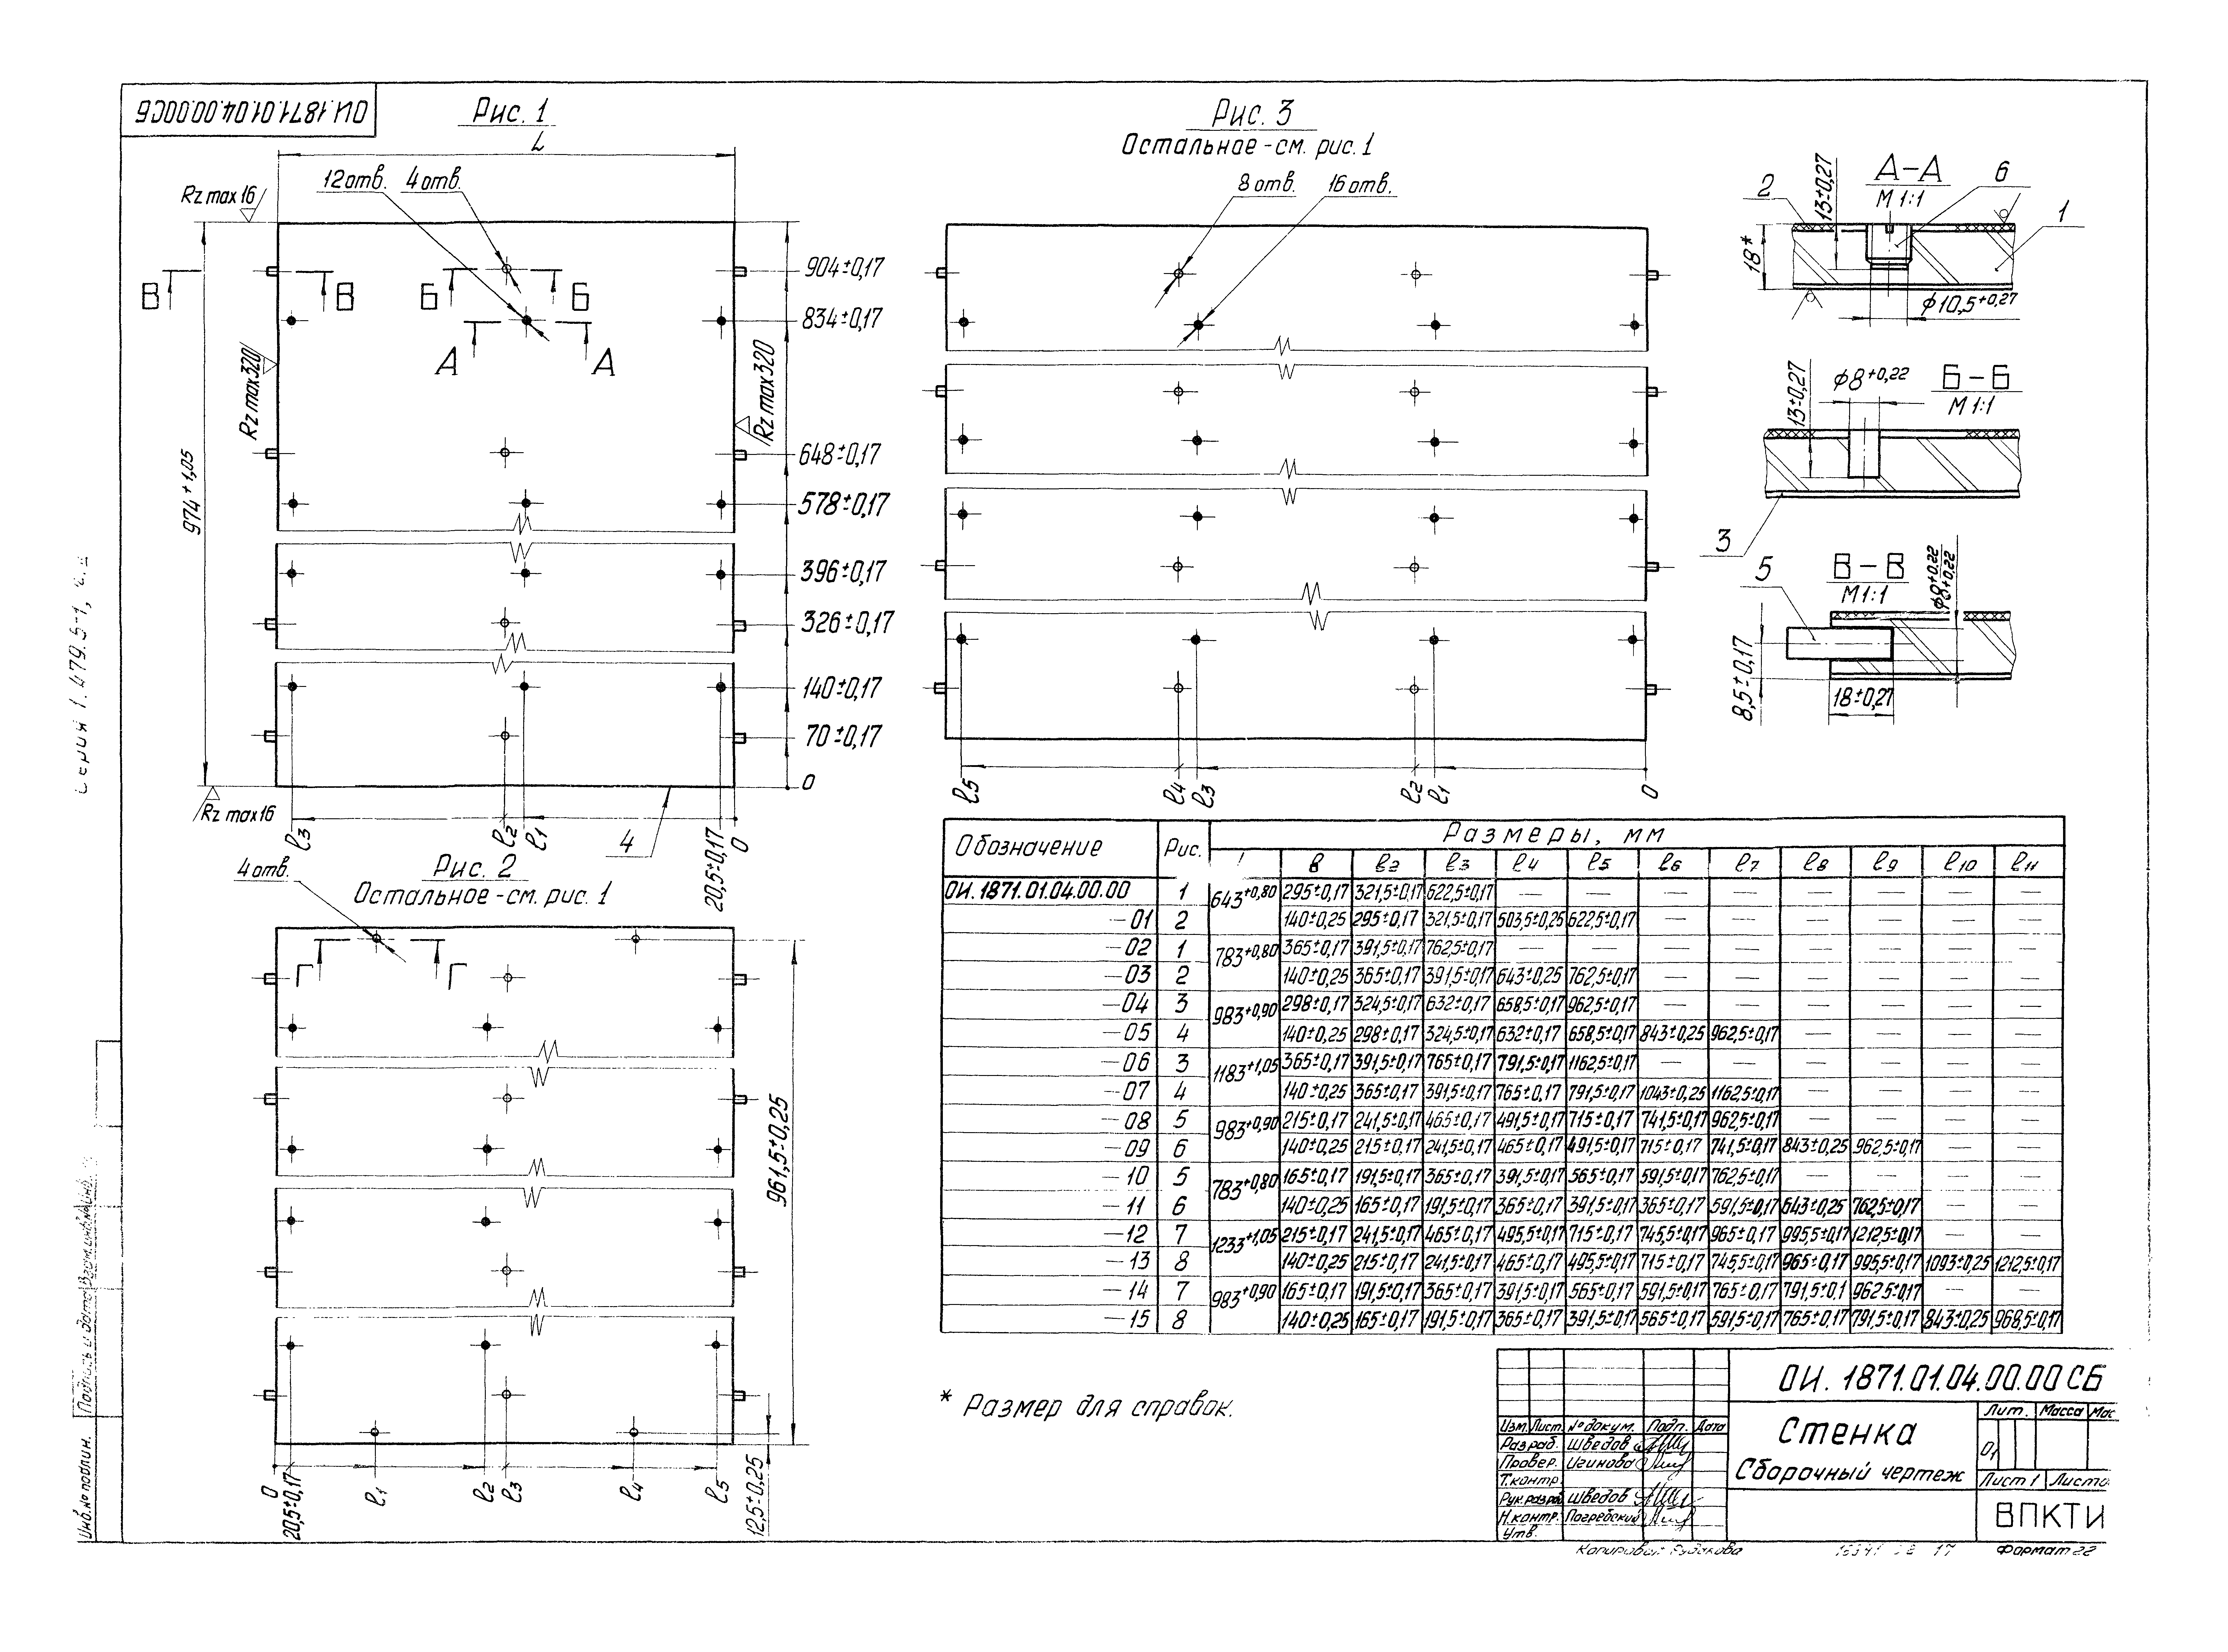 ОИ.1871.01.04.00.00СБ
Рис. 1
L
12 отв. 4 отв.
Rz max 16
904±0,17
В В Б Б
834±0,17
А А
Rz max 320
Rz max 320
648±0,17
974+1,05
578±0,17
396±0,17
326±0,17
140±0,17
70±0,17
0
Rz max 16
ℓ3 ℓ2 ℓ1 4 20,5±0,17 0
Рис. 2
Остальное - см. рис. 1
4 отв.
Г Г
961,5±0,25
0 20,5±0,17 ℓ1 ℓ2 ℓ3 ℓ4 ℓ5 12,5±0,25
Рис. 3
Остальное - см. рис. 1
8 отв. 16 отв.
ℓ5 ℓ4 ℓ3 ℓ2 ℓ1 0
А-А
М 1:1
2 13±0,27 6 1
18*
ϕ10,5+0,27
Б-Б
М 1:1
13±0,27 ϕ8+0,22
3
В-В
М 1:1
5
8,5±0,17
18±0,27
Обозначение Рис. Размеры, мм
ℓ ℓ2 ℓ3 ℓ4 ℓ5 ℓ6 ℓ7 ℓ8 ℓ9 ℓ10 ℓ11
ОИ.1871.01.04.00.00 1 643+0,80 295±0,17 321,5±0,17 622,5±0,17 — — — — — — — —
-01 2 140±0,25 295±0,17 321,5±0,17 503,5±0,25 622,5±0,17 — — — — — —
-02 1 783+0,80 365±0,17 391,5±0,17 762,5±0,17 — — — — — — — —
-03 2 140±0,25 365±0,17 391,5±0,17 643±0,25 762,5±0,17 — — — — — —
-04 3 983+0,90 298±0,17 324,5±0,17 632±0,17 658,5±0,17 962,5±0,17 — — — — — —
-05 4 140±0,25 298±0,17 324,5±0,17 632±0,17 658,5±0,17 843±0,25 962,5±0,17 — — — —
-06 3 1183+1,05 365±0,17 391,5±0,17 765±0,17 791,5±0,17 1162,5±0,17 — — — — — —
-07 4 140±0,25 365±0,17 391,5±0,17 765±0,17 791,5±0,17 1043±0,25 1162,5±0,17 — — — —
-08 5 983+0,90 215±0,17 241,5±0,17 465±0,17 491,5±0,17 715±0,17 741,5±0,17 962,5±0,17 — — — —
-09 6 140±0,25 215±0,17 241,5±0,17 465±0,17 491,5±0,17 715±0,17 741,5±0,17 843±0,25 962,5±0,17 — —
-10 5 783+0,80 165±0,17 191,5±0,17 365±0,17 391,5±0,17 565±0,17 591,5±0,17 762,5±0,17 — — — —
-11 6 140±0,25 165±0,17 191,5±0,17 365±0,17 391,5±0,17 365±0,17 591,5±0,17 643±0,25 762,5±0,17 — —
-12 7 1233+1,05 215±0,17 241,5±0,17 465±0,17 495,5±0,17 715±0,17 745,5±0,17 965±0,17 995,5±0,17 1212,5±0,17 — —
-13 8 140±0,25 215±0,17 241,5±0,17 465±0,17 495,5±0,17 715±0,17 745,5±0,17 965±0,17 995,5±0,17 1093±0,25 1212,5±0,17
-14 7 983+0,90 165±0,17 191,5±0,17 365±0,17 391,5±0,17 565±0,17 591,5±0,17 765±0,17 791,5±0,1 962,5±0,17 — —
-15 8 140±0,25 165±0,17 191,5±0,17 365±0,17 391,5±0,17 565±0,17 591,5±0,17 765±0,17 791,5±0,17 843±0,25 968,5±0,17
* Размер для справок.
ОИ.1871.01.04.00.00 СБ
Изм. Лист № докум. Подп. Дата
Разраб. Шведов
Провер. Игинова
Т.контр.
Рук.разраб. Шведов
Н.контр. Погребский
Утв.
Стенка
Сборочный чертеж
Лит. Масса Мас
01
Лист 1 Листо
ВПКТИ
Копировал: Рудакова
Формат 22
Серия 1.479.5-1,
Инв.№ подлин. Подпись и дата Взам.инв.№